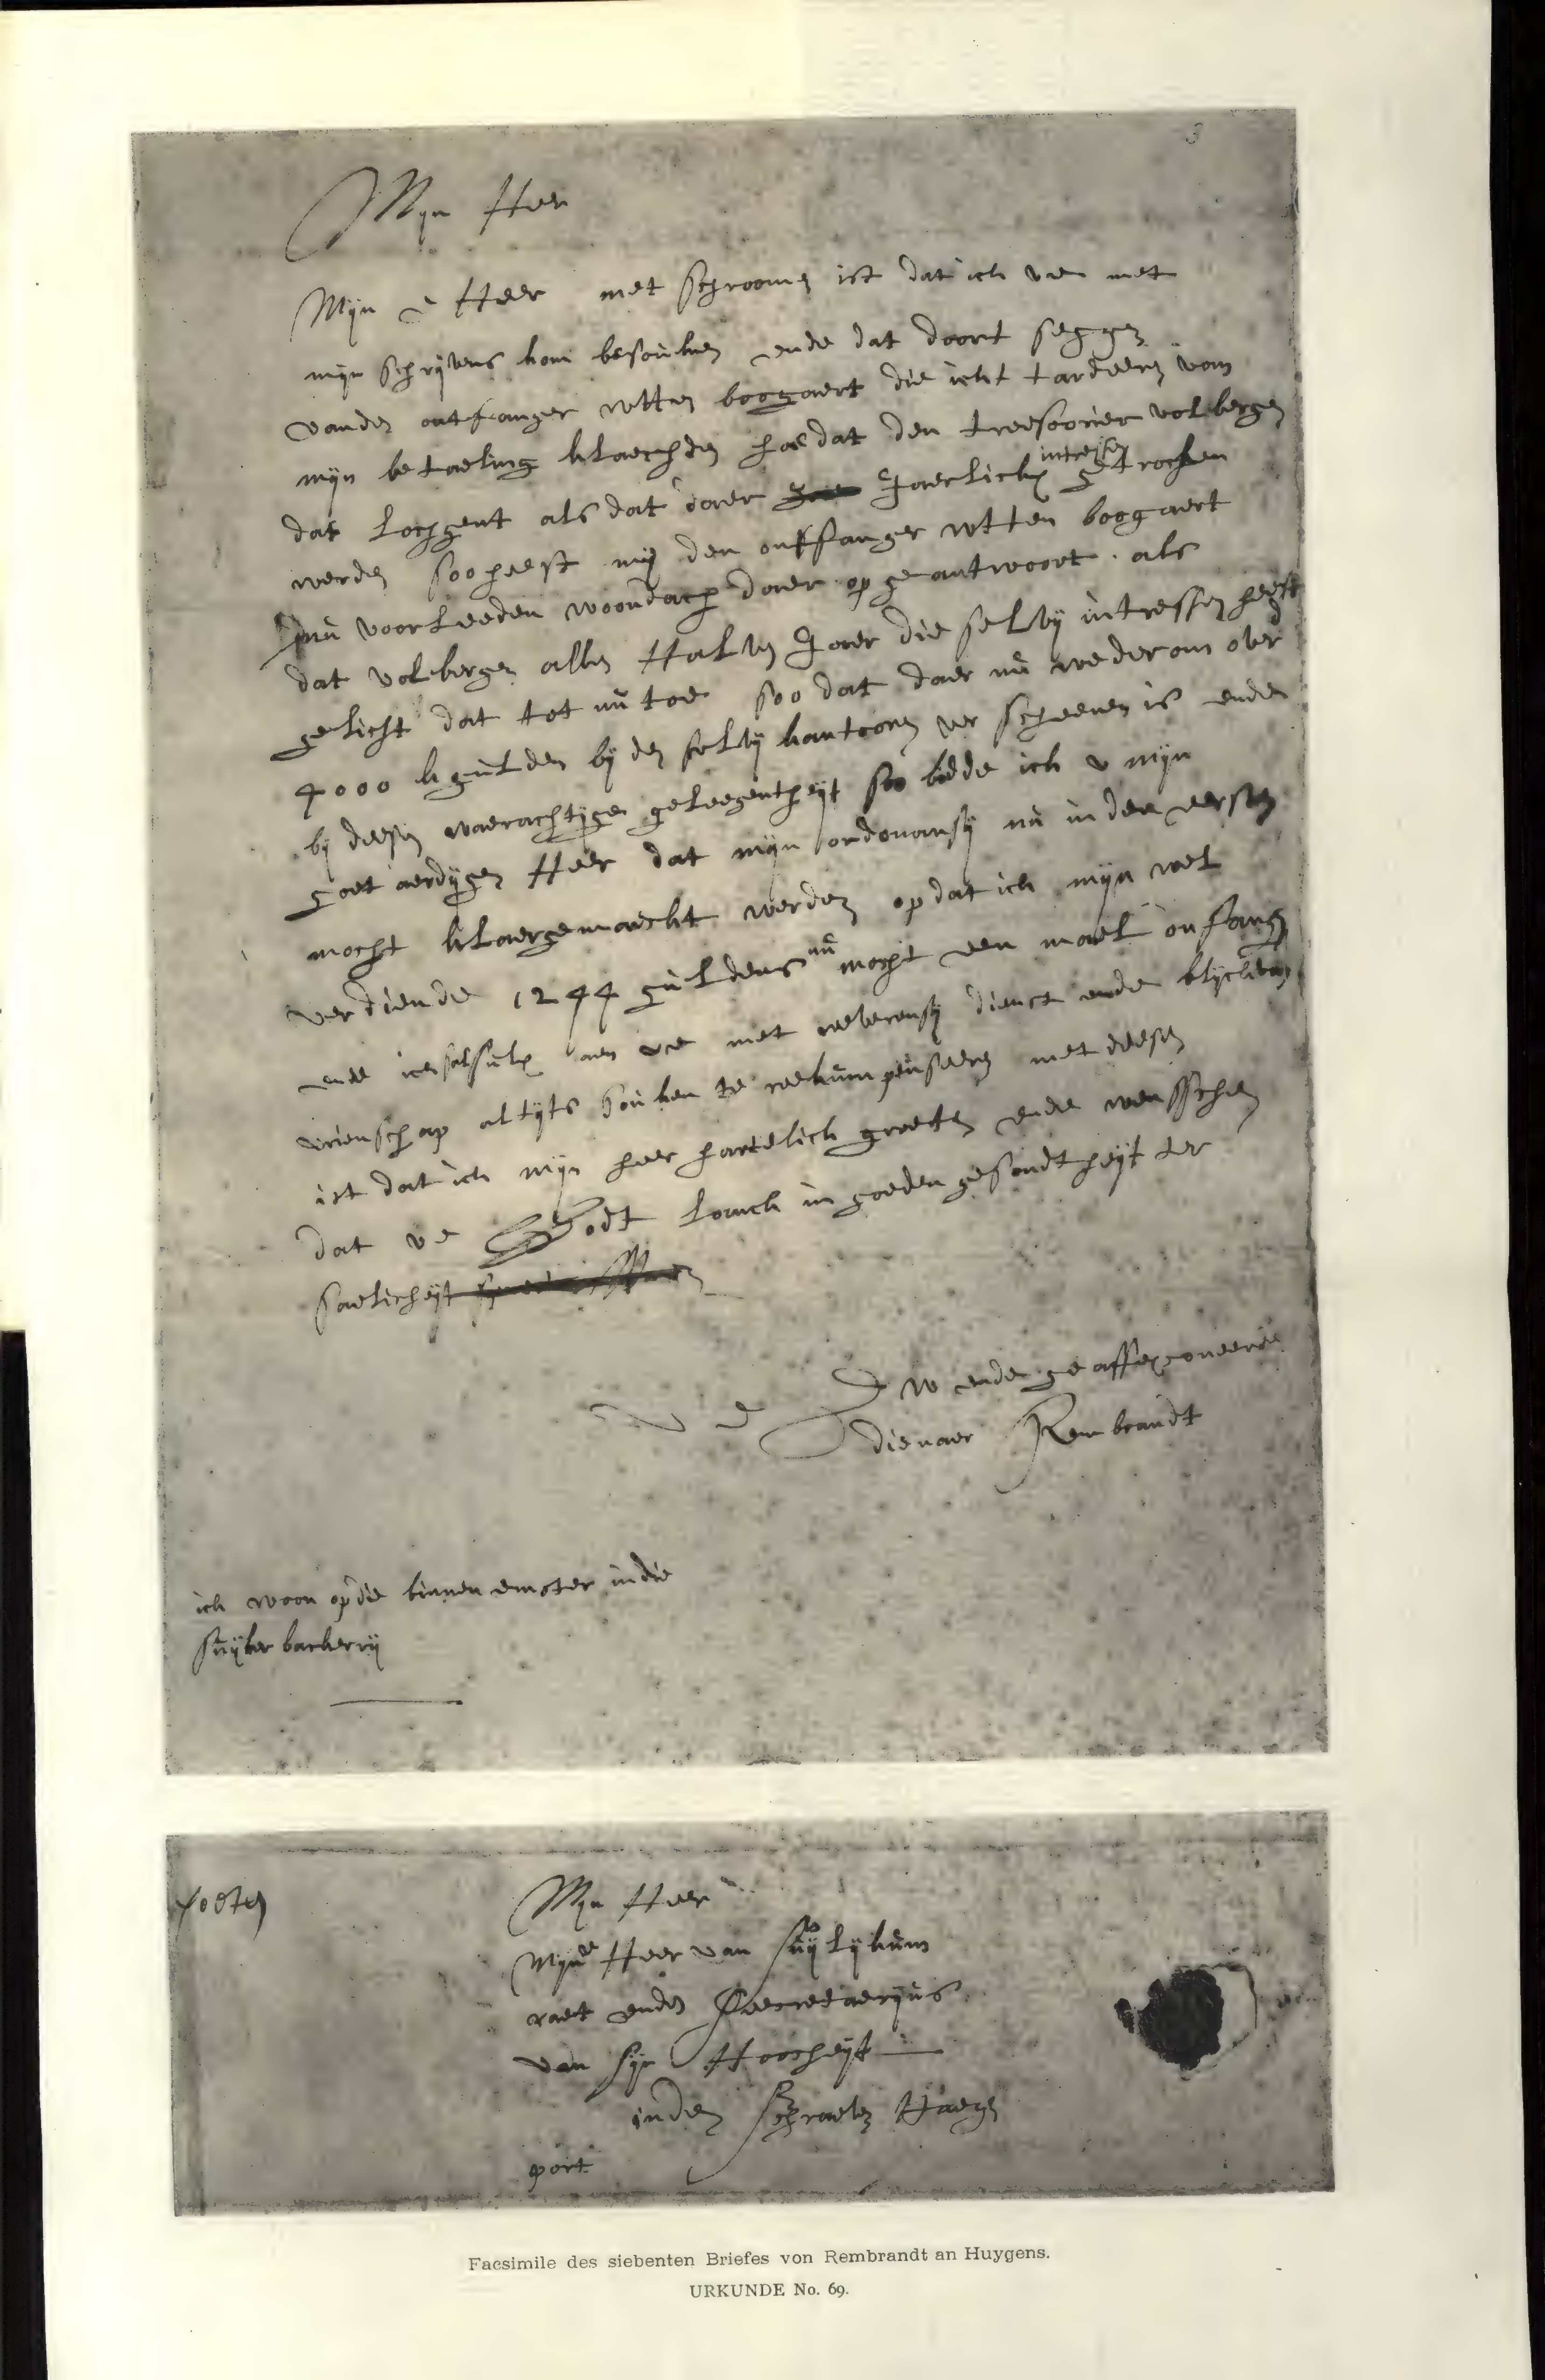 3
Mijn Heer
Mijn Heer met schroomen ist dat ick u e met
mijn schrijvens kom besouken ende dat doort seggen
vanden ontfanger wtten boogaert die ickt tardeeren van
mijn betaeling klaechden hoe dat den treesoorier volbergen
dat lochgent als dat daer Jaerlickx intressen getrocken
werden soo heeft mij den onffanger wtten boogaert
nu voorleeden woondach daer op geantwoort als
dat volbergen allen Halven Jaer die selvij intressen heeft
gelicht dat tot nu toe soo dat daer nu wederom over
4000 k gulden bij den selvij kantooren verscheenen is ende
bij deesen waerachtijgen geleegentheijt soo bidde ick u mijn
goet aerdijgen Heer dat mijn ordonansij nu in den eersten
mocht klaergemaeckt werden op dat ick mijn wel
verdiende 1244 guldens nu mocht een mael onfangen
ende ick sal sulx aen u e met reeverensij dienst ende blijck van
vrienschap altijts souken te reekumpenseeren met deesen
ist dat ick mijn heer hartelick groeten ende wensschen
dat u e Godt lanck in goeden gesondtheijt ter
saelicheijt
U E D w ende geaffexconeerde
dienaer Rembrandt
ick woon op die binnen emster in die
suijker backerrij
Mijn Heer
Mijnde Heer van suijlijkum
raet ende Seecretaerijus
van sijn Hoocheijt
in den schraeven Haegen
port
Facsimile des siebenten Briefes von Rembrandt an Huygens.
URKUNDE No. 69.